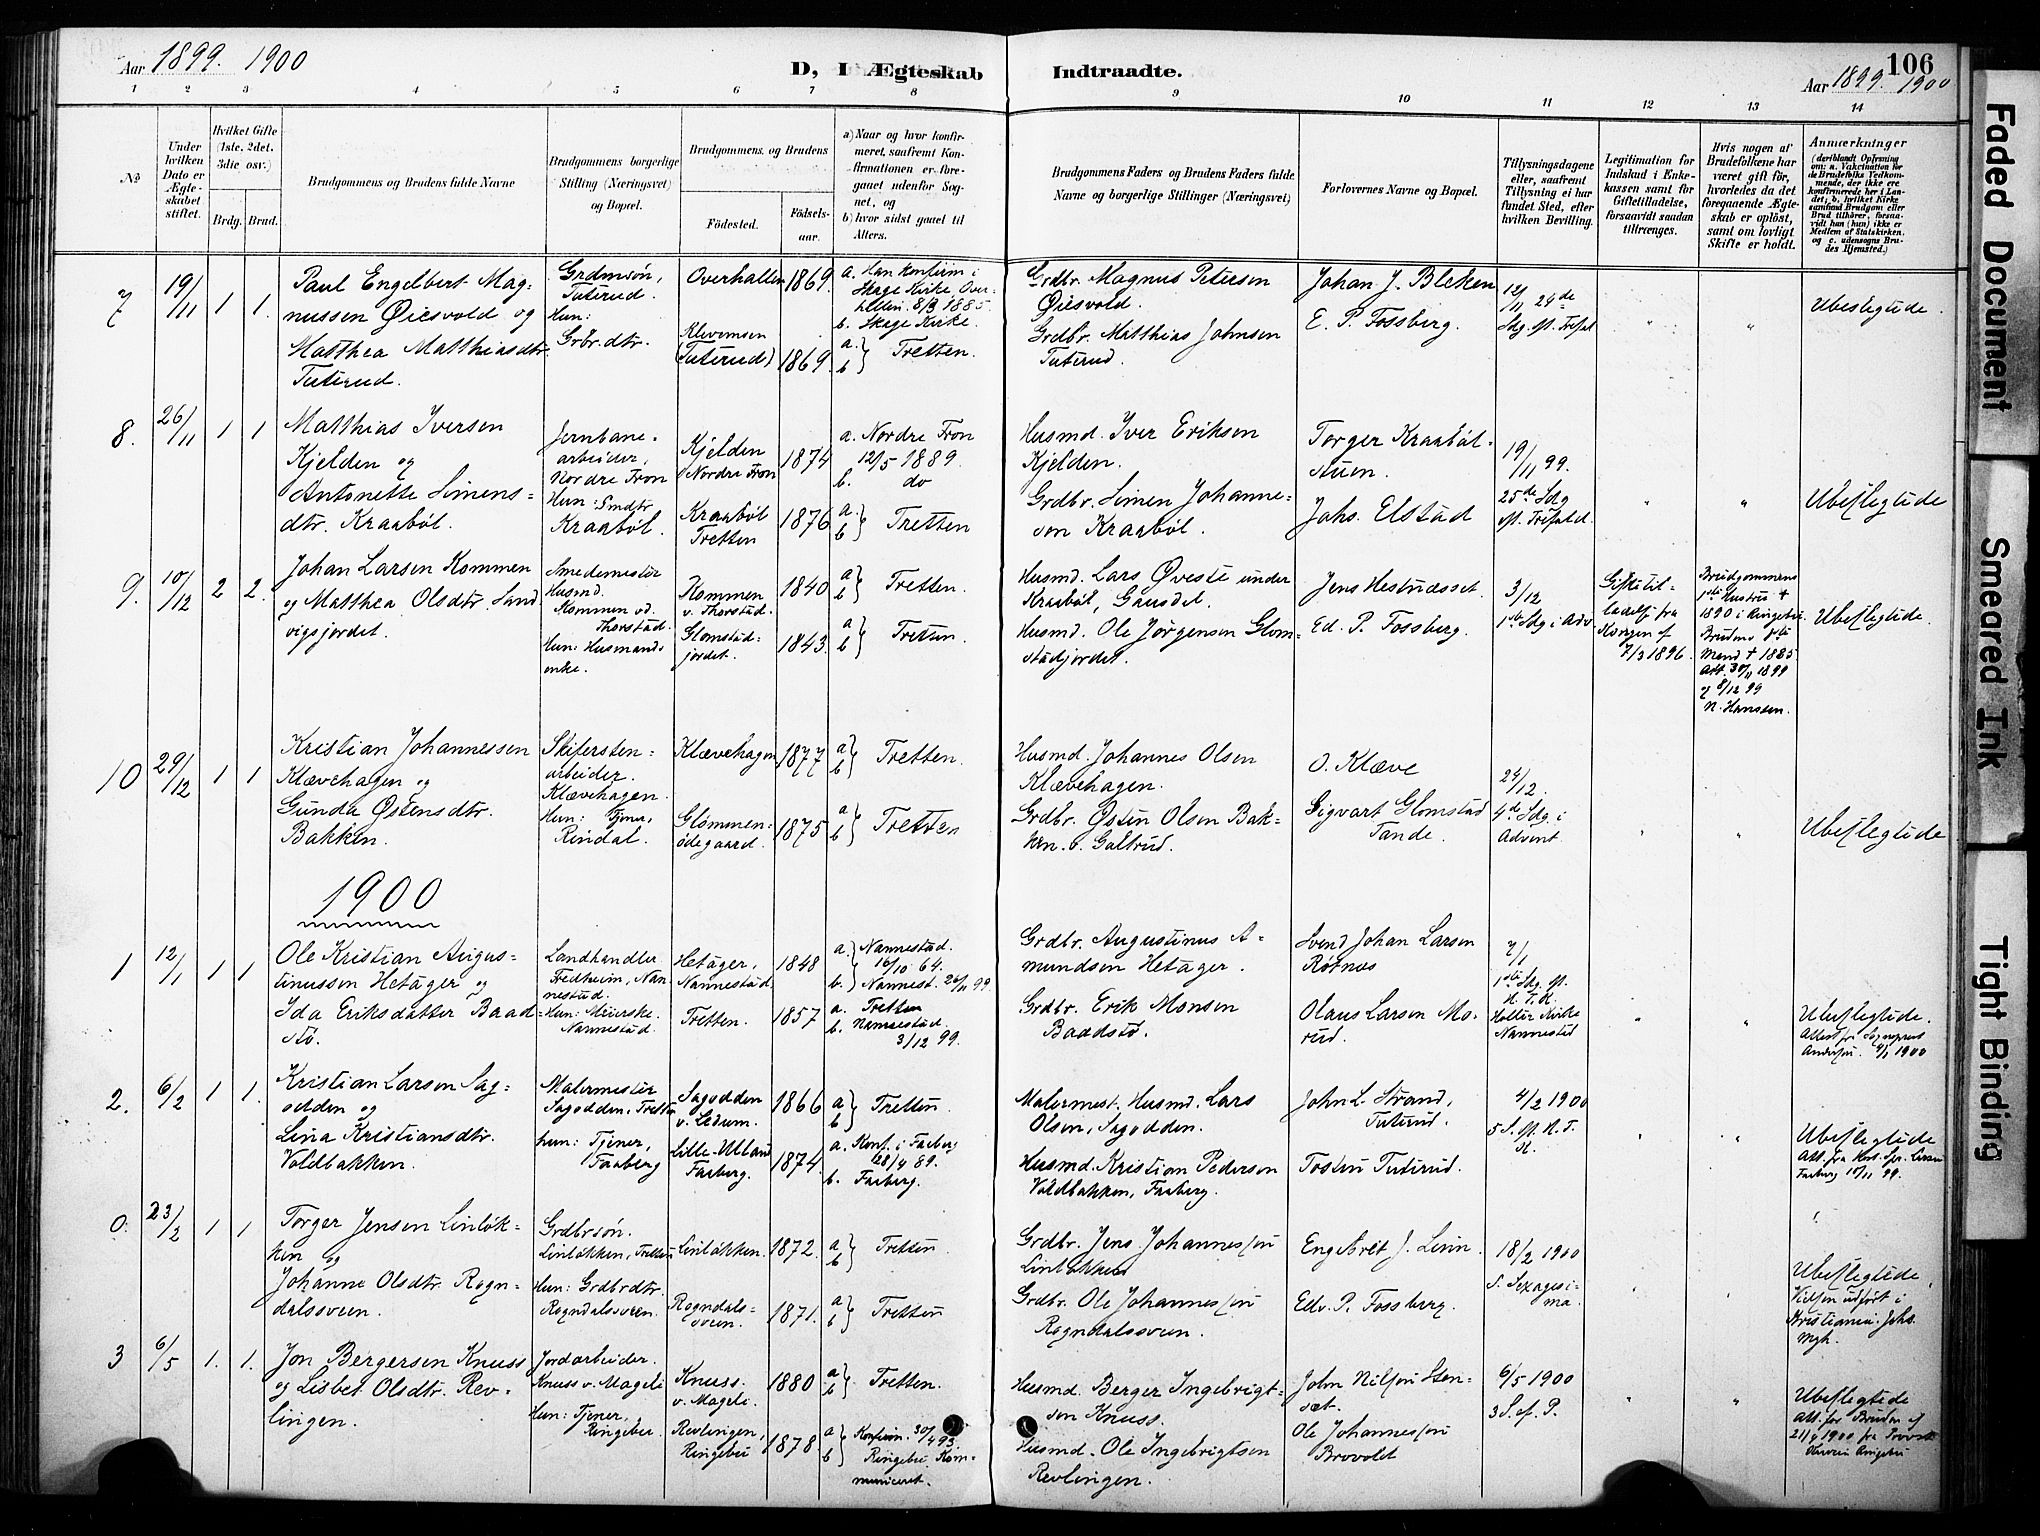 Aar 1899. 1900
D, I Ægteskab Indtraadte.
106
Aar 1899. 1900
1 2 3 4 5 6 7 8 9 10 11 12 13 14
No
Under hvilken Dato er Ægteskabet stiftet.
Hvilket Gifte (1ste, 2det, 3die osv.)
Brdg. Brud.
Brudgommens og Brudens fulde Navne
Brudgommens borgerlige Stilling (Næringsvei) og Bopæl.
Brudgommens og Brudens
Fødested.
Fødselsaar.
a) Naar og hvor konfirmeret, saafremt Konfirmationen er foregaaet udenfor Sognet, og
b) hvor sidst gaaet til Alters.
Brudgommens Faders og Brudens Faders fulde Navne og borgerlige Stillinger (Næringsvei)
Forlovernes Navne og Bopæl.
Tillysningsdagene eller, saafremt Tillysning ei har fundet Sted, efter hvilken Bevilling.
Legitimation for Indskud i Enkekassen samt for Giftetilladelse, forsaavidt saadan tiltrænges.
Hvis nogen af Brudefolkene har været gift før, hvorledes da det foregaaende Ægteskab er opløst, samt om lovligt Skifte er holdt.
Anmærkninger
7
19/11
1 1.
Paul Engelbert Magnussen Øiesvold og
Matthea Matthiasdtr. Tuterud.
Grdmsøn, Tuterud.
Hun: Grbr.dtr.
Overhallen 1869.
Klevemoen (Tuterud) 1869.
a. Han konfirm i Skage Kirke Overhallen 8/3 1885.
b. Skage Kirke.
a. b } Tretten.
Grdbr. Magnus Petersen Øiesvold.
Grdbr. Matthias Johnsen Tuterud.
Johan J. Bleken
E. P. Fossberg.
12/11 24de Sdg. ft. Trefold
Ubeslegtede.
8.
26/11
1 1
Matthias Iversen Kjelden og
Antonette Simensdtr. Kraabøl.
Jernbanearbeider, Nordre Fron
Hun: Smdtr Kraabøl.
Kjelden Nordre Fron 1874
Kraabøl Tretten 1876
a. Nordre Fron 12/5 1889.
b. do
a. b } Tretten
Husmd. Iver Eriksen Kjelden.
Grdbr. Simen Johannesen Kraabøl.
Torger Kraabølstuen.
Johs. Elstad
19/11 99.
25de Sdg ft. Trefold.
Ubeslegtede
9.
10/12
2 2.
Johan Larsen Kommen
og Matthea Olsdtr. Sandvigsjordet.
Smedemester Husmd. Kommen vd. Thorstad.
Hun: Husmands enke.
Kommen v. Thorstad. 1840
Glomstadjordet. 1843
a b } Tretten.
a b } Tretten.
Husmd. Lars Øveste under Kraabøl, Gausdal.
Husmd. Ole Jørgensen Glomstadjordet.
Jens Hestnæsset.
Ed. P. Fossberg.
3/12
1ste Sdg i Adv
Giftetilladelse fra Kongen af 7/3 1896.
Brudgommens 1ste Hustru † 1890 i Ringebu
Brudens 1ste Mand † 1885.
Att. 30/11 1899
& 8/12 99
N. Hanssen.
Ubeslegtede.
10
29/12
1 1
Kristian Johannessen Klævehagen og
Gunda Østensdtr. Bakken.
Skiferstenarbeider. Klævehagen.
Hun: Tjener, Rindal.
Klævehagen 1877
Glommenødegaard. 1875
a b } Tretten.
a b } Tretten
Husmd. Johannes Olsen Klævehagen.
Grdbr. Østen Olsen Bakken v. Galtrud.
O. Klæve
Sigvart Glomstad Tande.
24/12.
4de Sdg. i Advent.
Ubeslegtede
1900
1
12/1
1 1
Ole Kristian Augustinussen Hetager og
Ida Eriksdatter Baadstø.
Landhandler Fredheim, Nannestad.
Hun: Meierske. Nannestad.
Hetager, Nannestad. 1848
Tretten. 1857
a. Nannestad. 16/10 64.
b. Nannest. 26/11 99.
a. Tretten
b. Nannestad. 3/12 99.
Grdbr. Augustinus Amundsen Hetager.
Grdbr. Erik Monsen Baadstø.
Svend Johan Larsen Rotnes
Olaus Larsen Morud.
7/1
1ste Sdg. ft. H. T. K.
Holter Kirke Nannestad
Ubeslegtede.
Attest fra Sognepr. Andersen. 4/1 1900
2.
6/2
1 1.
Kristian Larsen Sagodden og
Lina Kristiansdtr. Voldbakken.
Malermester Sagodden, Tretten
hun: Tjener, Faaberg
Sagodden v. Ledum. 1866
Lille-Ulland Faaberg. 1874
a b } Tretten.
a. Konf. i Faaberg 28/4 89.
b. Faaberg.
Malermest. Husmd. Lars Olsen, Sagodden.
Husmd. Kristian Pedersen Voldbakken, Faaberg.
John L. Strand, Tuterud.
Tosten Tuterud.
4/2 1900
5 S. ft. H. T. K.
Ubeslegtede
0.
23/2
1 1.
Torger Jensen Linløkken og
Johanne Olsdtr. Rogndalssveen.
Grdbrsøn. Linløkken, Tretten
Hun: Grdbrdtr. Rogndalssveen.
Linløkken. 1872.
Rogndalssveen. 1871.
a b } Tretten.
a b } Tretten
Grdbr. Jens Johannessen Linløkken
Grdbr. Ole Johannessen Rogndalssveen.
Engebret J. Linn.
Edv. P. Fossberg.
18/2 1900
S. Sexagesima.
Ubeslegtede.
Vielsen udført i Kristiania. Johs. Mgh.
3
6/5
1. 1.
Jon Bergersen Knuss
og Lisbet Olsdtr. Revlingen.
Jordarbeider. Knuss v. Mageli
Hun: Tjener, Ringebu.
Knuss. v. Mageli. 1880
Revlingen, Ringebu 1878
a b } Tretten.
a b } Konfirm. 30/4 93 Ringebu Kommuniceret.
Husmd. Berger Ingebrigtsen Knuss.
Husmd. Ole Ingebrigtsen Revlingen.
John Nilsen Stenset.
Ole Johannessen Brovolet
6/5 1900
3 S. ef. P.
Ubeslegtede
Att. for Bruden af 21/4 1900 fra Provst
Faded Document
Smeared Ink
Tight Binding